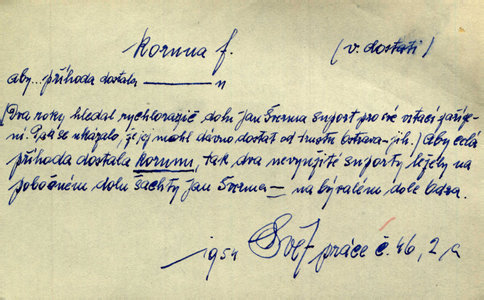 koruna f. (v. dostati)
aby... příhoda dostala ———— u
(Dva roky hledal rychlorazič dolu Jan Šverma suport pro své vrtací zaříze-
ní. Pak se ukázalo, že jej mohl dávno dostat od trustu Ostrava-jih.) Aby celá
příhoda dostala korunu, tak dva nevyužité suporty ležely na
pobočném dolu šachty Jan Šverma — na bývalém dole Odra.
1954 Svět práce č. 46, 2, a